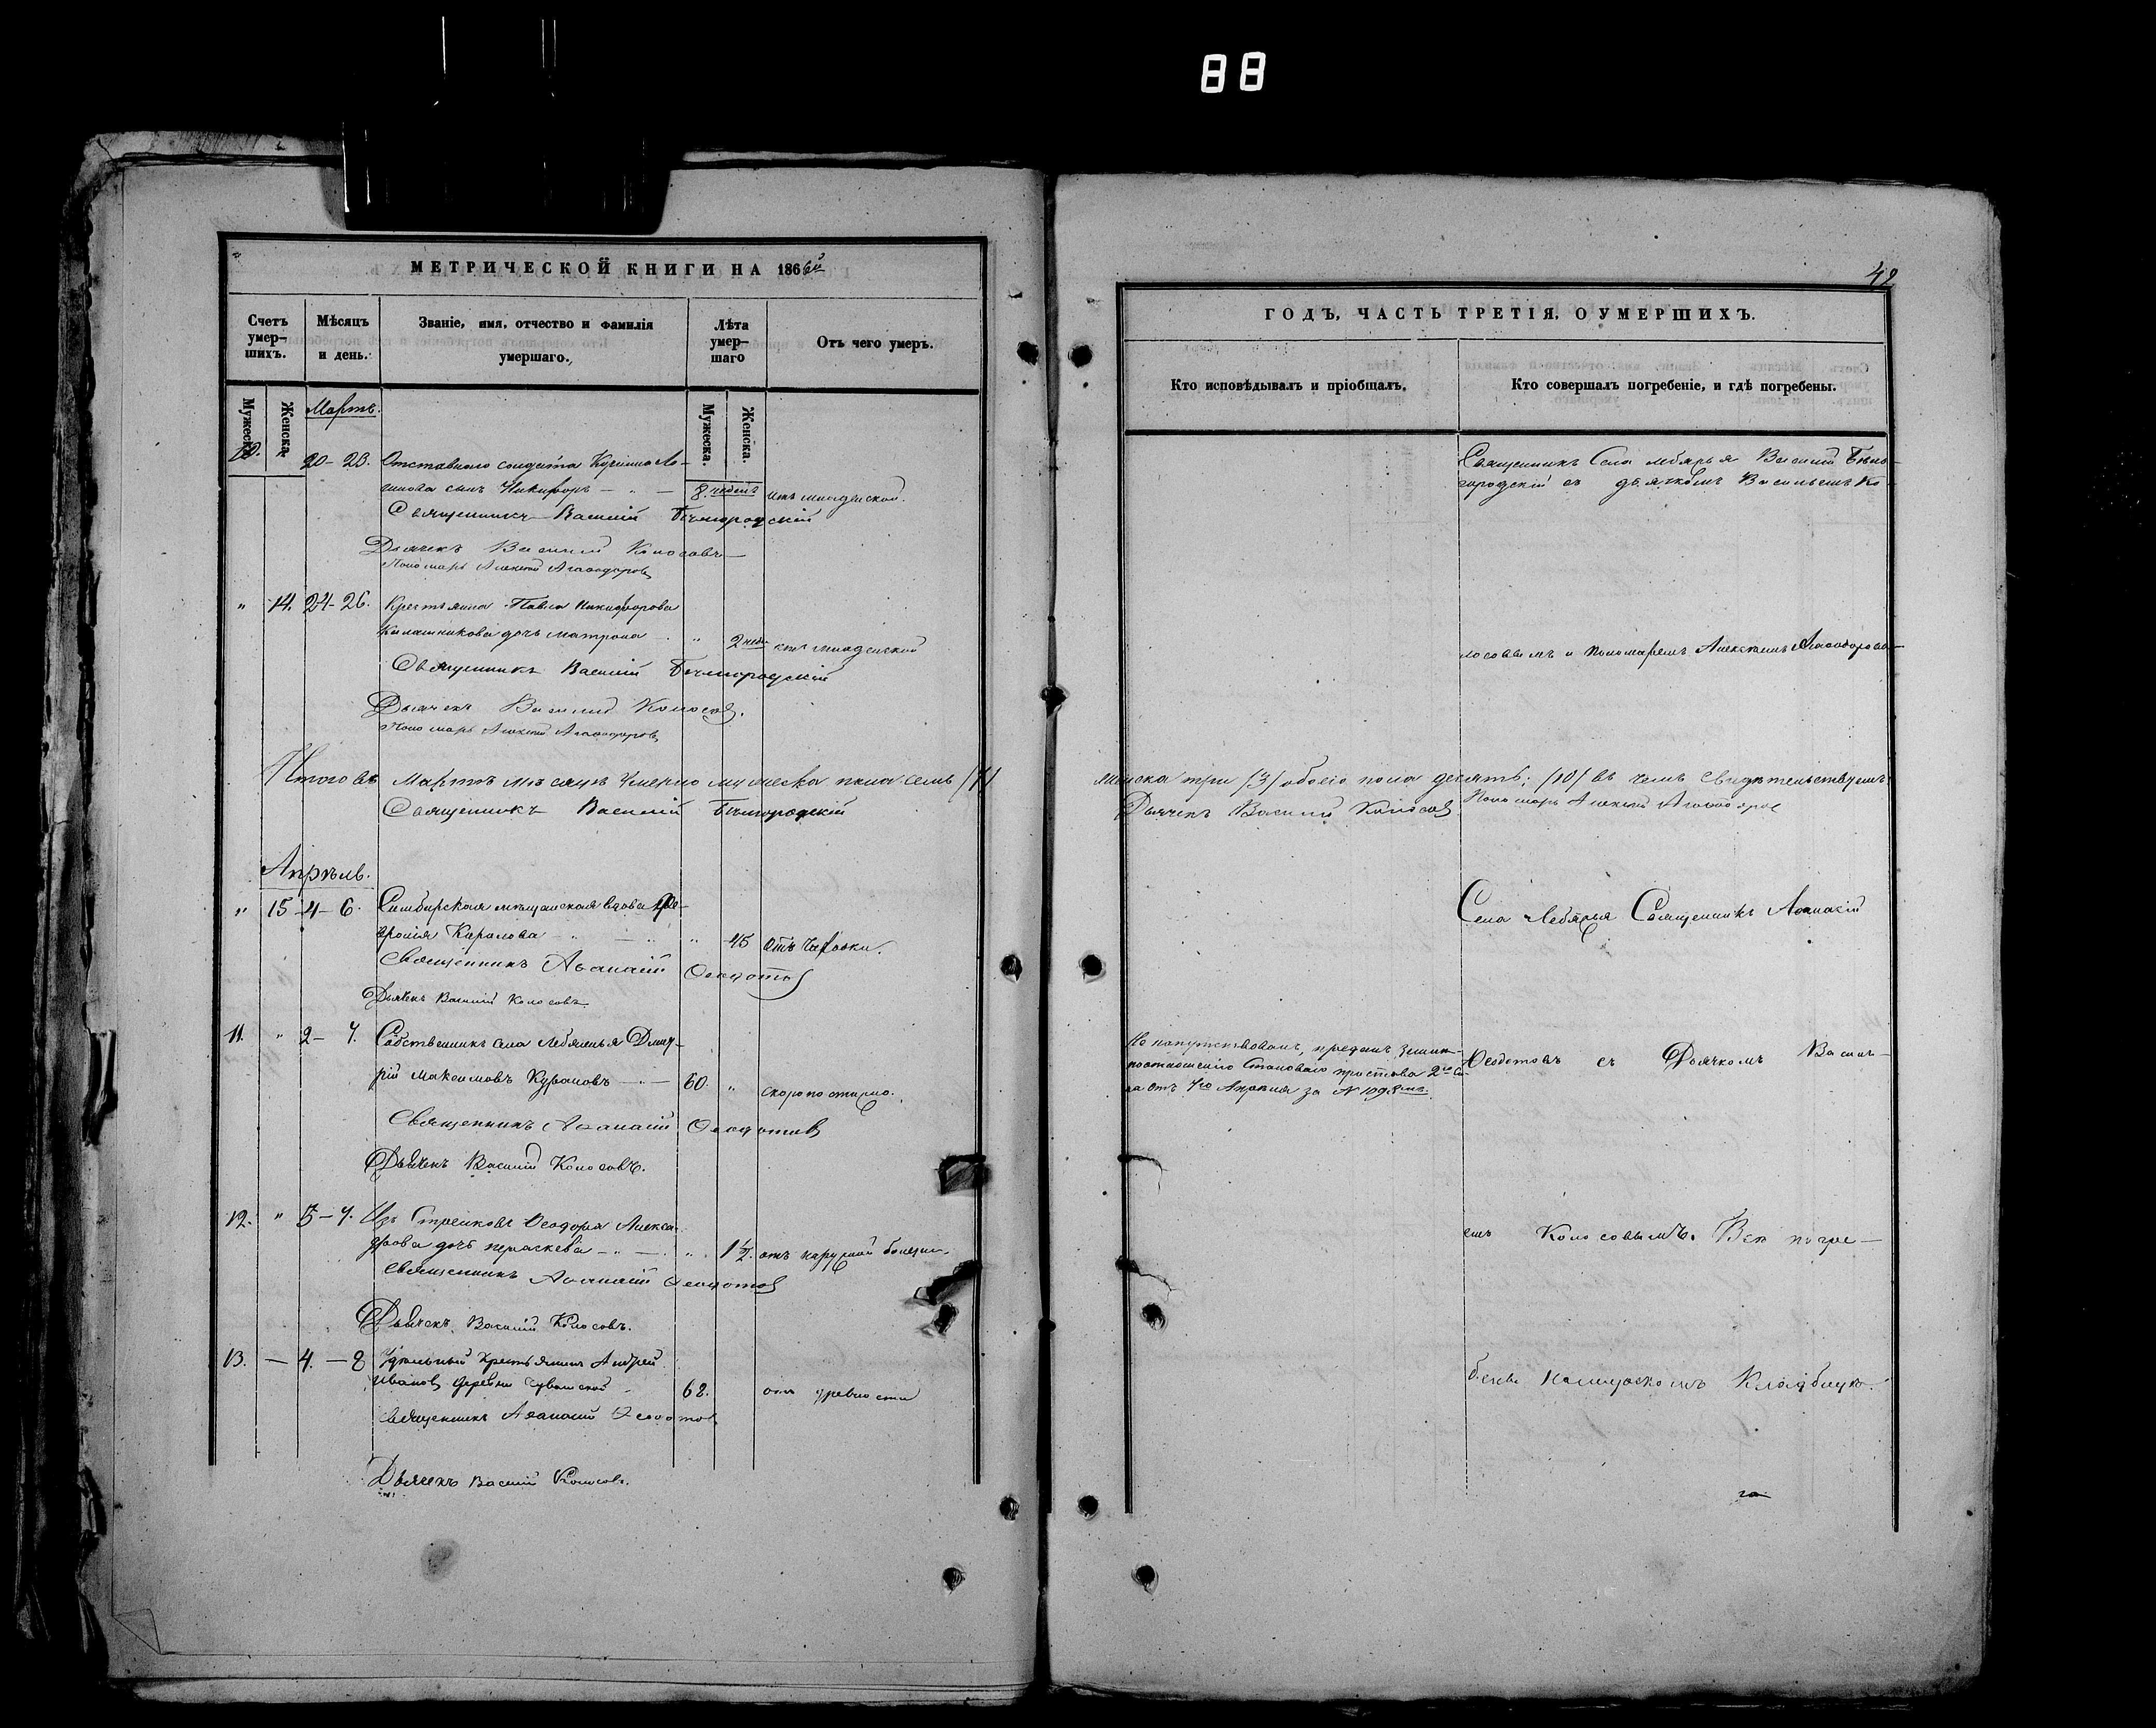 88
МЕТРИЧЕСКОЙ КНИГИ НА 1866й
Счетъ умер-шихъ.
Мѣсяцъ и день.
Званіе, имя, отчество и фамилія умершаго.
Лѣта умер-шаго
Отъ чего умеръ.
Мужеска.
Женска.
Мартъ.
Мужеска.
Женска.
10. 20-23. Отставного солдата
сынъ Никифоръ 8 недель отъ младенской.
Священникъ Василій Бѣлгородскій
Дьячекъ Василій Колосовъ
Пономарь Алексѣй Агаѳодоровъ
" 14. 24-26. Крестьянина Павла Никифорова
Калашникова дочь Матрона " 2 нед. отъ младенской
Священникъ Василій Бѣлгородскій
Дьячекъ Василій Колосов.
Пономарь Алексѣй Агаѳодоровъ
Итого въ Мартѣ мѣсяцѣ умерло мужеска пола семь /7/
Священникъ Василій Бѣлгородскій
Апрѣль.
" 15 4-6. Симбирская мѣщанская вдова Фе-
вронія " 45 Отъ чахотки.
Священникъ Аѳанасій Ѳеодотов
Дьячекъ Василій Колосовъ
11. " 2-7. Собственникъ села Лебяжья Дмит-
рій Максимовъ Курановъ 60. " скоропостижно.
Священникъ Аѳанасій Ѳеодотов
Дьячекъ Василій Колосовъ.
12. " 5-7. Изъ Ѳеодора Алекса-
дрова дочь Параскева " 1½. отъ наружной болезни.
Священникъ Аѳанасій Ѳеодотов
Дьячекъ Василій Колосовъ.
13. — 4.—8 Удѣльный крестьянинъ Андрей
Иванов деревни Чувашской 68. отъ древности
Священникъ Аѳанасій Ѳеодотов
Дьячекъ Василій Колосовъ.
42
ГОДЪ, ЧАСТЬ ТРЕТІЯ, О УМЕРШИХЪ.
Кто исповѣдывалъ и пріобщалъ.
Кто совершалъ погребеніе, и гдѣ погребены.
Священникъ Села Лебяжья Василій Бѣло-
городскій съ дьячкомъ Васильемъ Ко-
лосовымъ и Пономаремъ Алексѣемъ Агаѳодоровы
Женска три /3/ обоего пола десять: /10/ въ чемъ свидѣтельствуемъ
Дьячекъ Василій Колосов
Пономарь Алексѣй Агаѳодоров
Села Лебяжья Священникъ Аѳанасій
Не напутствованъ, преданъ землѣ
по отношенію Становаго пристава 2го Ста-
на отъ 7го Апрѣля за N 1098мъ.
Ѳеодотовъ съ Дьячкомъ Василь-
емъ Колосовымъ. Всѣ погре-
бены на кладбищѣ.